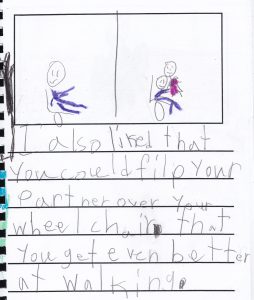 I also liked that
you could filp your
Partner over your
wheel chair that
you get even better
at walking